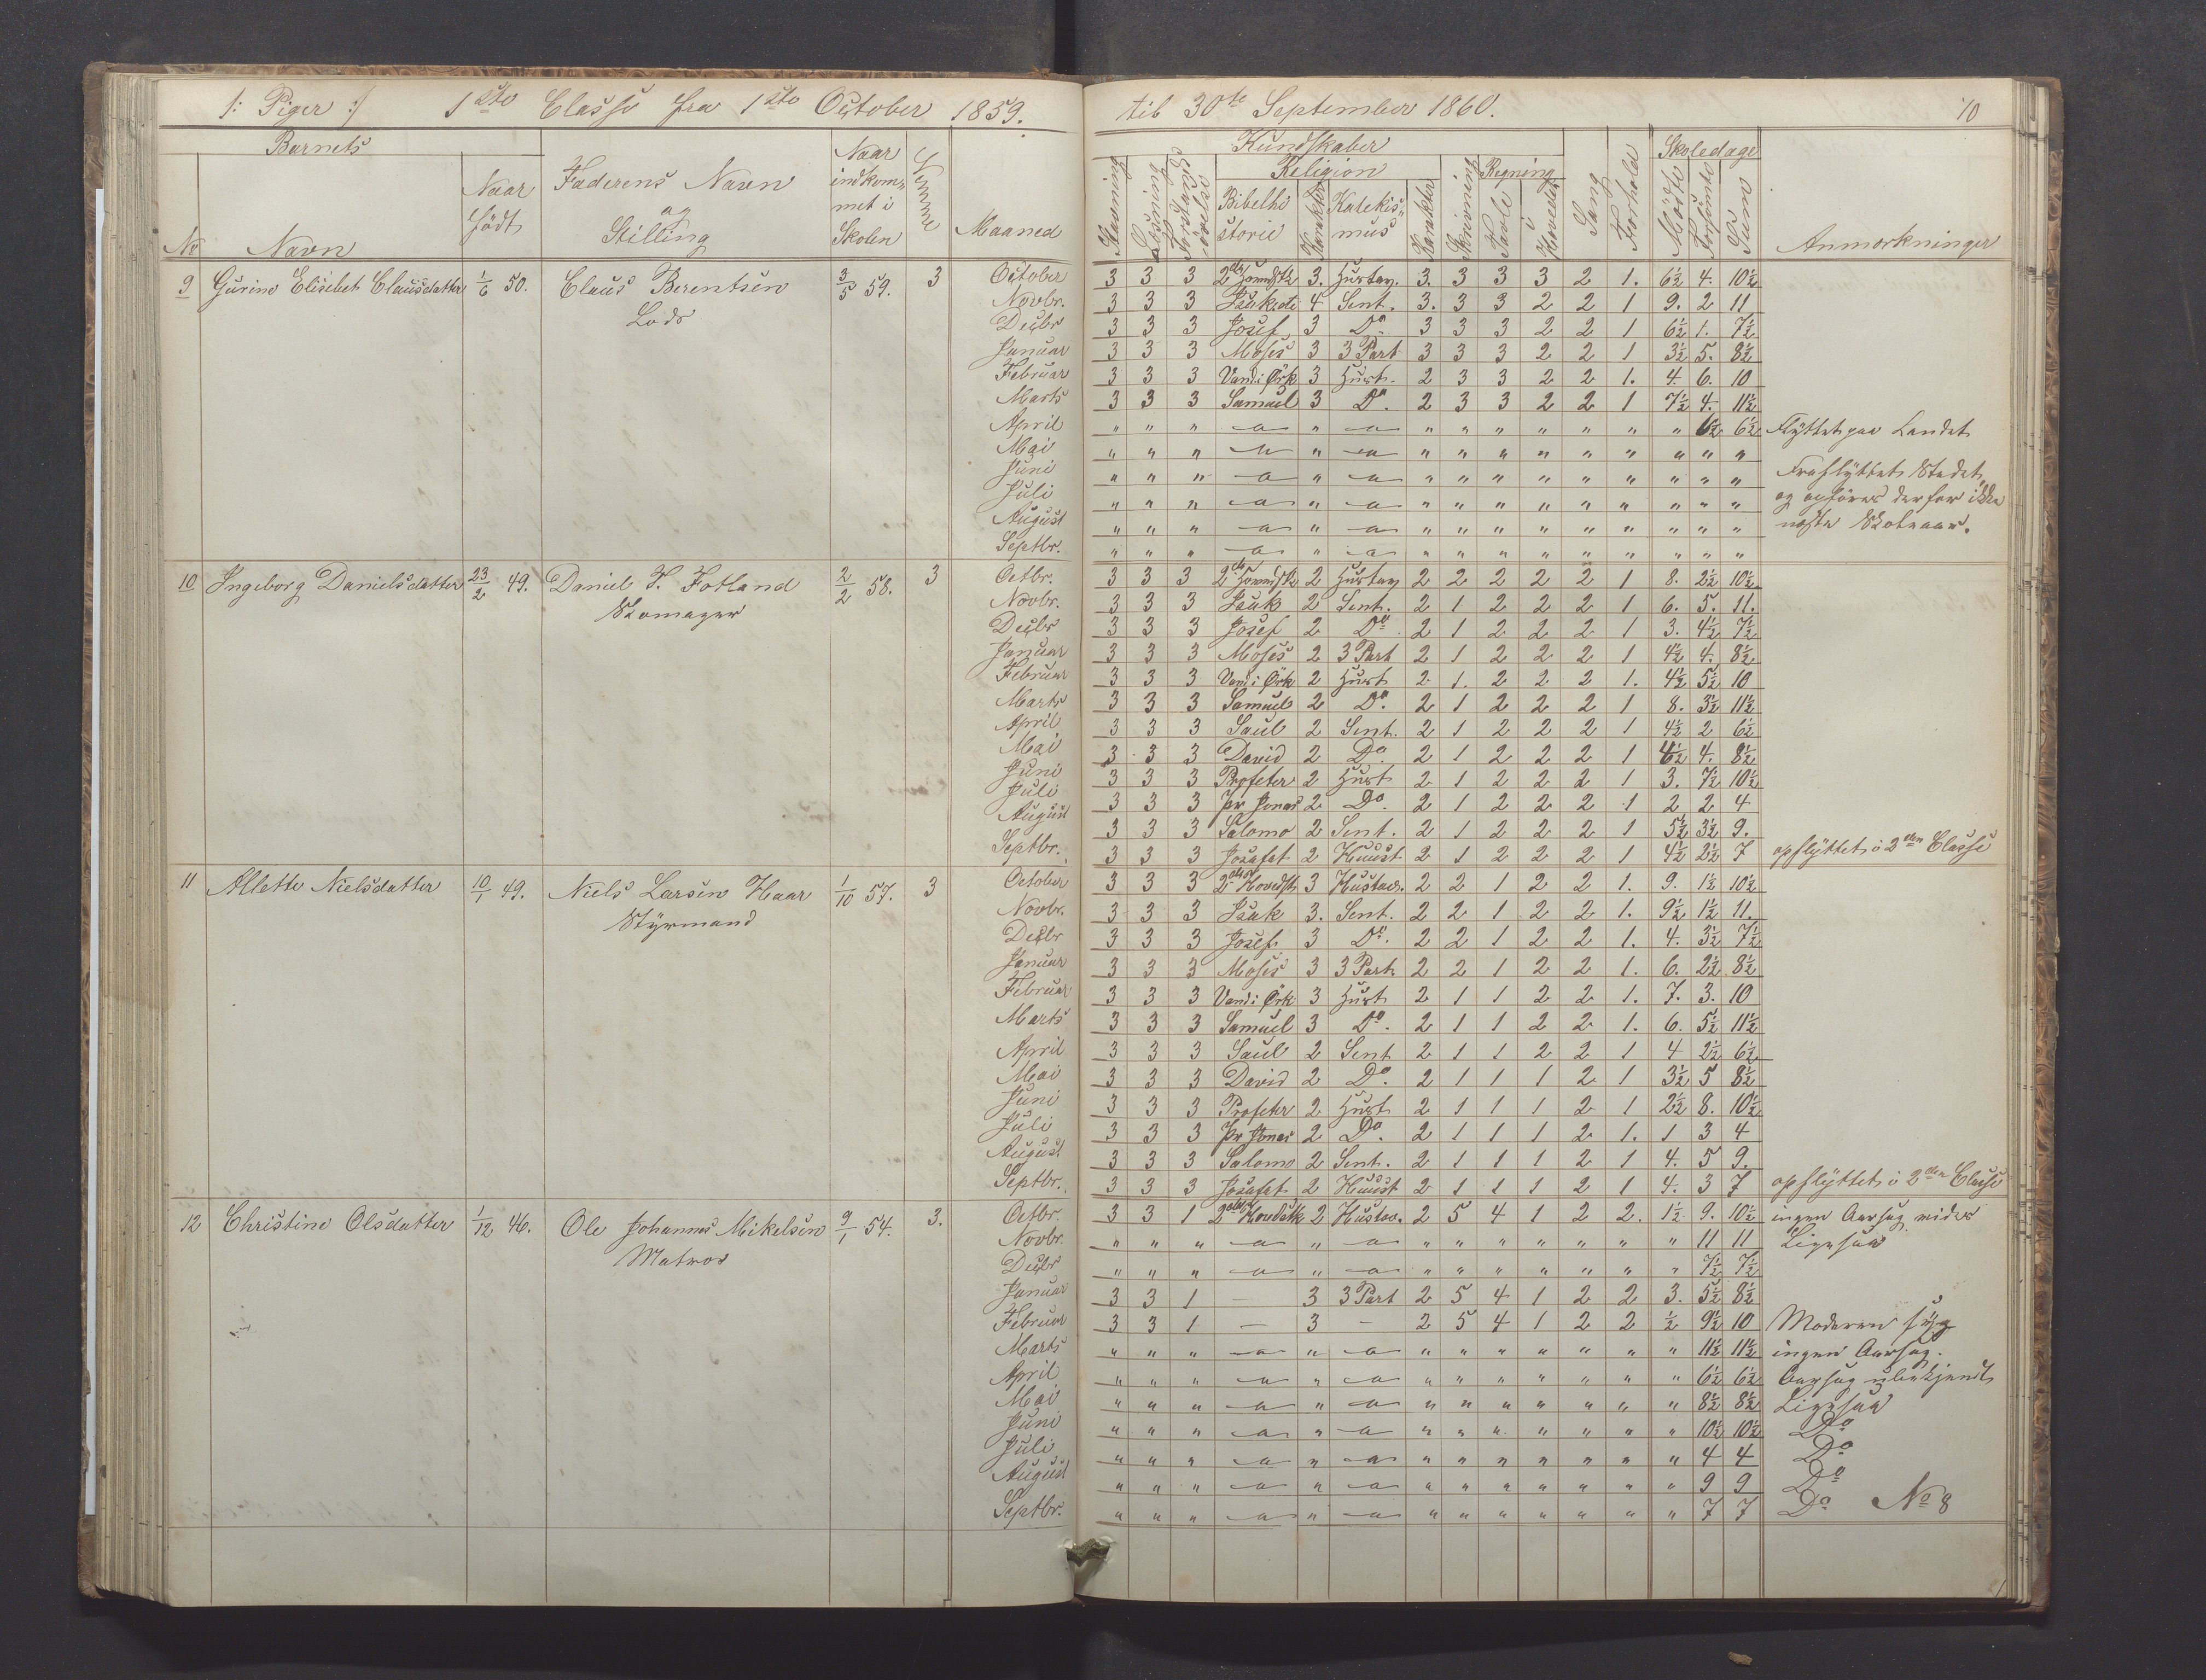 /: Piger :/ 1ste Classe fra 1ste October 1859. til 30te September 1860. 10
Barnets Naar Kundskaber Skoledage
No Navn Naar født Faderens Navn og Stilling Naar indkommet i Skolen Nemme Maaned Stavning Læsning Forstandsøvelse Religion Bibelhistorie Karakter Katekismus Karakter Skrivning Regning Tavle i Hovedet Sang Forhold Mødte Forsømte Sum Anmærkninger
9 Gurine Elisebet Clausdatter 1/6 50. Claus Berentsen 3/5 59. 3 October 3 3 3 2det Hovedstk 3. Hustav. 3. 3 3 3 2 1. 6½ 4. 10½
Lods Novbr. 3 3 3 4 Sent. 3. 3 3 2 2 1 9. 2 11
Decbr 3 3 3 Josef 3 Do 3 3 3 2 2 1 6½ 1. 7½
Januar 3 3 3 Moses 3 3 Part 3 3 3 2 2 1 3½ 5. 8½
Februar 3 3 3 Vand i Ørk 3 Hust. 2 3 3 2 2 1. 4. 6. 10
Marts 3 3 3 Samuel 3 Do. 2 3 3 2 2 1 7½ 4. 11½
April " " " — " — " " " " " " " 6½ 6½ Flyttet paa Landet
Mai " " " — " — " " " " " " " " "
Juni " " " — " — " " " " " " " " " Fraflyttet Stedet,
Juli " " " — " — " " " " " " " " " og opføres derfor ikke
August " " " — " — " " " " " " " " " næste Skoleaar.
Septbr. " " " — " — " " " " " " " " "
10 Ingeborg Danielsdatter 23/2 49. Daniel T. Fotland 2/2 58. 3 Octbr. 3 3 3 2det Hovedstk 2 Hustav 2 2 2 2 2 1 8. 2½ 10½
Skomager Novbr. 3 3 3 Isak 2 Sent. 2 1 2 2 2 1 6. 5. 11.
Decbr 3 3 3 Josef 2 Do 2 1 2 2 2 1 3. 4½ 7½
Januar 3 3 3 Moses 2 3 Part 2 1 2 2 2 1 4½ 4. 8½
Februar 3 3 3 Vand i Ørk 2 Hust 2 1. 2 2 2 1. 4½ 5½ 10
Marts 3 3 3 Samuel 2 Do. 2 1 2 2 2 1 8. 3½ 11½
April 3 3 3 Saul 2 Sent. 2 1 2 2 2 1 4½ 2 6½
Mai 3 3 3 David 2 Do 2 1 2 2 2 1 4½ 4. 8½
Juni 3 3 3 Profeter 2 Hust 2 1 2 2 2 1 3. 7½ 10½
Juli 3 3 3 Pr Jonas 2 Do. 2 1 2 2 2 1 2 2 4
August 3 3 3 Salomo 2 Sent. 2 1 2 2 2 1 5½ 3½ 9.
Septbr. 3 3 3 Josafat 2 Huust 2 1 2 2 2 1 4½ 2½ 7 opflyttet i 2den Classe
11 Allette Nielsdatter 10/1 49. Niels Larsen Haar 1/10 57. 3 October 3 3 3 2det Hovedst 3 Hustav. 2 2 1 2 2 1. 9. 1½ 10½
Styrmand Novbr. 3 3 3 Isak 3. Sent. 2 2 1 2 2 1. 9½ 1½ 11.
Decbr 3 3 3 Josef 3 Do. 2 2 1 2 2 1. 4. 3½ 7½
Januar 3 3 3 Moses 3 3 Part 2 2 1 2 2 1. 6. 2½ 8½
Februar 3 3 3 Vand i Ørk 3 Hust 2 1 1 2 2 1. 7. 3. 10
Marts 3 3 3 Samuel 3 Do. 2 1 1 2 2 1. 6. 5½ 11½
April 3 3 3 Saul 2 Sent 2 1 1 2 2 1 4 2½ 6½
Mai 3 3 3 David 2 Do. 2 1 1 1 2 1 3½ 5 8½
Juni 3 3 3 Profeter 2 Hust 2 1 1 1 2 1 2½ 8. 10½
Juli 3 3 3 Pr Jonas 2 Do. 2 1 1 1 2 1. 1 3 4
August 3 3 3 Salomo 2 Sent. 2 1 1 1 2 1 4. 5 9.
Septbr. 3 3 3 Josafat 2 Huust 2 1 1 1 2 1 4. 3 7 opflyttet i 2den Classe
12 Christine Olsdatter 1/12 46. Ole Johannes Mikelsen 9/1 54. 3. Octbr. 3 3 1 2det Hovedstk 2 Hustav. 2 5 4 1 2 2. 1½ 9. 10½ ingen Aarsag vides
Matros Novbr. " " " — " — " " " " " " " 11 11 Ligesaa
Decbr " " " — " — " " " " " " " 7½ 7½
Januar 3 3 1 — 3 3 Part 2 5 4 1 2 2 3. 5½ 8½
Februar 3 3 1 — 3 — 2 5 4 1 2 2 ½ 9½ 10 Moderen syg
Marts " " " — " — " " " " " " " 11½ 11½ ingen Aarsag.
April " " " — " — " " " " " " " 6½ 6½ Aarsag ubekjendt
Mai " " " — " — " " " " " " " 8½ 8½ Ligesaa
Juni " " " — " — " " " " " " " 10½ 10½ Do
Juli " " " — " — " " " " " " " 4 4 Do
August " " " — " — " " " " " " " 9 9 Do
Septbr. " " " — " — " " " " " " " 7 7 Do No 8